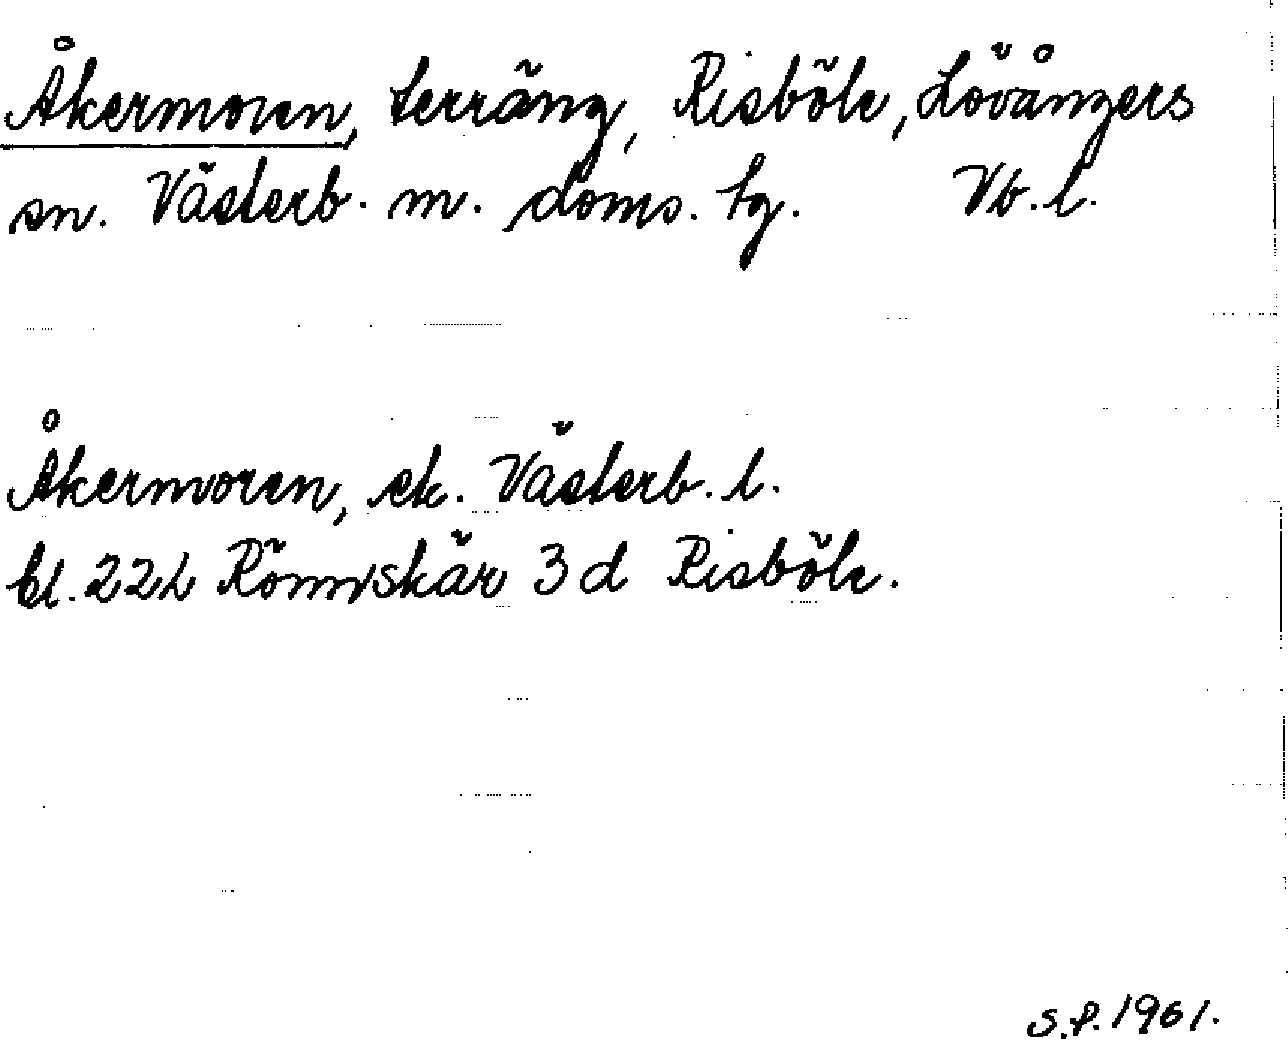 Åkermoren, terräng, Risböle, Lövångers
sn. Västerb. m. doms. tg. Vb. l.
Åkermoren, ek. Västerb. l.
bl. 22L Rönnskär 3d Risböle.
S.f. 1961.